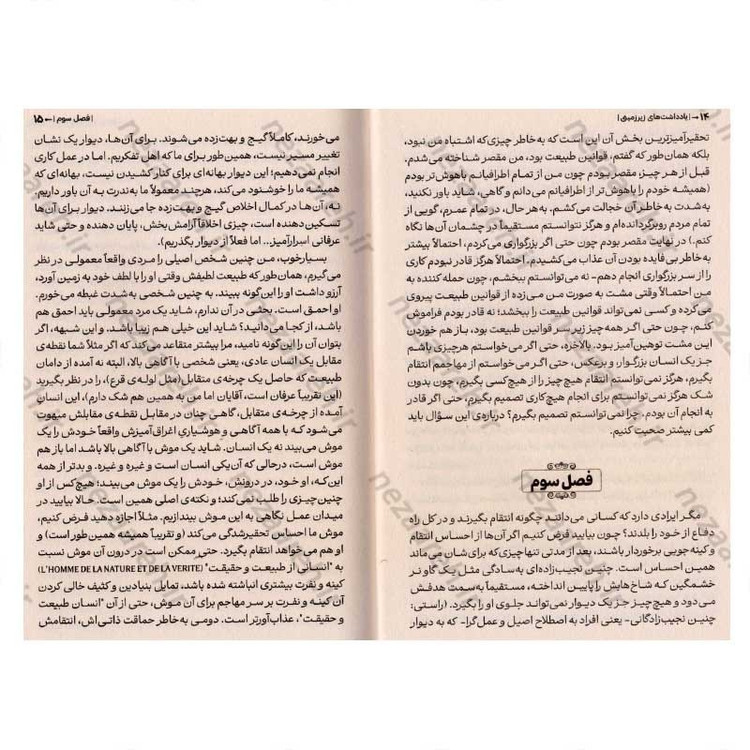 ۱۴ ← | یادداشت‌های زیرزمینی |
تحقیرآمیزترین بخش آن این است که به‌خاطر چیزی‌که اشتباه من نبود،
بلکه همان‌طور که گفتم، قوانین طبیعت بود، من مقصر شناخته می‌شدم.
قبل از هر چیز، مقصر بودم چون من از تمام اطرافیانم باهوش‌تر بودم
(همیشه خودم را باهوش‌تر از اطرافیانم می‌دانم و گاهی، شاید باور نکنید،
به‌شدت به خاطر آن خجالت می‌کشم. به‌هر حال، در تمام عمرم، گویی از
تمام مردم روبرگردانده‌ام و هرگز نتوانستم مستقیماً در چشمان آن‌ها نگاه
کنم.) در نهایت مقصر بودم چون حتی اگر بزرگواری می‌کردم، احتمالاً بیشتر
به‌خاطر بی‌فایده بودن آن عذاب می‌کشیدم. احتمالاً هرگز قادر نبودم کاری
را از سر بزرگواری انجام دهم- نه می‌توانستم ببخشم، چون حمله کننده به
من احتمالاً وقتی مشت به صورت من می‌زده از قوانین طبیعت پیروی
می‌کرده و کسی نمی‌تواند قوانین طبیعت را ببخشد؛ نه قادر بودم فراموش
کنم، چون حتی اگر همه‌چیز زیر سر قوانین طبیعت بود، باز هم خوردن
این مشت توهین‌آمیز بود. بالاخره، حتی اگر می‌خواستم هرچیزی باشم
جز یک انسان بزرگوار، و برعکس، حتی اگر می‌خواستم از مهاجمم انتقام
بگیرم، هرگز نمی‌توانستم انتقام هیچ چیز را از هیچ‌کسی بگیرم، چون بدون
شک هرگز نمی‌توانستم برای انجام هیچ‌کاری تصمیم بگیرم، حتی اگر قادر
به انجام آن بودم. چرا نمی‌توانستم تصمیم بگیرم؟ درباره‌ی این سؤال باید
کمی بیشتر صحبت کنیم.
فصل سوم
مگر ایرادی دارد که کسانی می‌دانند چگونه انتقام بگیرند و در کل راه
دفاع از خود را بلدند؟ چون بیایید فرض کنیم اگر آن‌ها از احساس انتقام
و کینه‌جویی برخوردار باشند، بعد از مدتی تنها چیزی‌که برای‌شان می‌ماند
همین احساس است. چنین نجیب‌زاده‌ای به‌سادگی مثل یک گاو نر
خشمگین که شاخ‌هایش را پایین انداخته، مستقیماً به‌سمت هدفش
می‌دود و هیچ‌چیز جز یک دیوار نمی‌تواند جلوی او را بگیرد. (راستی:
چنین نجیب‌زادگانی- یعنی افراد به اصطلاح اصیل و عمل‌گرا- که به دیوار
| فصل سوم | → ۱۵
می‌خورند، کاملاً گیج و بهت‌زده می‌شوند. برای آن‌ها، دیوار یک نشان
تغییر مسیر نیست، همین‌طور برای ما که اهل تفکریم. اما در عمل کاری
انجام نمی‌دهیم؛ این دیوار بهانه‌ای برای کنار کشیدن نیست، بهانه‌ای که
همیشه ما را خوشنود می‌کند، هرچند معمولاً ما به‌ندرت به آن باور داریم.
نه، آن‌ها در کمال اخلاص گیج و بهت‌زده جا می‌زنند. دیوار برای آن‌ها
تسکین‌دهنده است، چیزی اخلاقاً آرامش بخش، پایان دهنده و حتی شاید
عرفانی اسرارآمیز... اما فعلاً از دیوار بگذریم).
بسیارخوب، من چنین شخص اصیلی را مردی واقعاً معمولی در نظر
می‌گیرم، همان‌طور که طبیعت لطیفش وقتی او را با لطف خود به زمین آورد،
آرزو داشت او را این‌گونه ببیند. به چنین شخصی به‌شدت غبطه می‌خورم.
او احمق است، بحثی در آن ندارم، شاید یک مرد معمولی باید احمق هم
باشد، از کجا می‌دانید؟ شاید این خیلی هم زیبا باشد. و این شبهه، اگر
بتوان آن را این‌گونه نامید، مرا بیشتر متقاعد می‌کند که اگر مثلاً شما نقطه‌ی
مقابل یک انسان عادی، یعنی شخصی با آگاهی بالا، البته نه آمده از دامان
طبیعت که حاصل یک چرخه‌ی متقابل (مثل لوله‌ی قرع)، را در نظر بگیرید
(این تقریباً عرفان است، آقایان اما من به همین هم شک دارم)، این انسان
آمده از چرخه‌ی متقابل، گاهی چنان در مقابل نقطه‌ی مقابلش مبهوت
می‌شود که با همه آگاهی و هوشیاری اغراق‌آمیزش واقعاً خودش را یک
موش می‌بیند نه یک انسان. شاید یک موش با آگاهی بالا باشد اما باز هم
موش است، درحالی که آن‌یکی انسان است و غیره و غیره. و بدتر از همه
این‌که، او خود، در درونش، خودش را یک موش می‌بیند؛ هیچ‌کس از او
چنین‌چیزی را طلب نمی‌کند؛ و نکته‌ی اصلی همین است. حالا بیایید در
میدان عمل نگاهی به این موش بیندازیم. مثلاً اجازه دهید فرض کنیم،
موش ما احساس تحقیرشدگی می‌کند (و تقریباً همیشه همین طور است) و
او هم می‌خواهد انتقام بگیرد. حتی ممکن است در درون آن موش نسبت
به "انسانی از طبیعت و حقیقت" (L'HOMME DE LA NATURE ET DE LA VERITE)
کینه و نفرت بیشتری انباشته شده باشد، تمایل بنیادین و کثیف خالی کردن
آن کینه و نفرت بر سر مهاجم برای آن موش، حتی از آن "انسان طبیعت
و حقیقت"، عذاب‌آورتر است. دومی به خاطر حماقت ذاتی‌اش، انتقامش